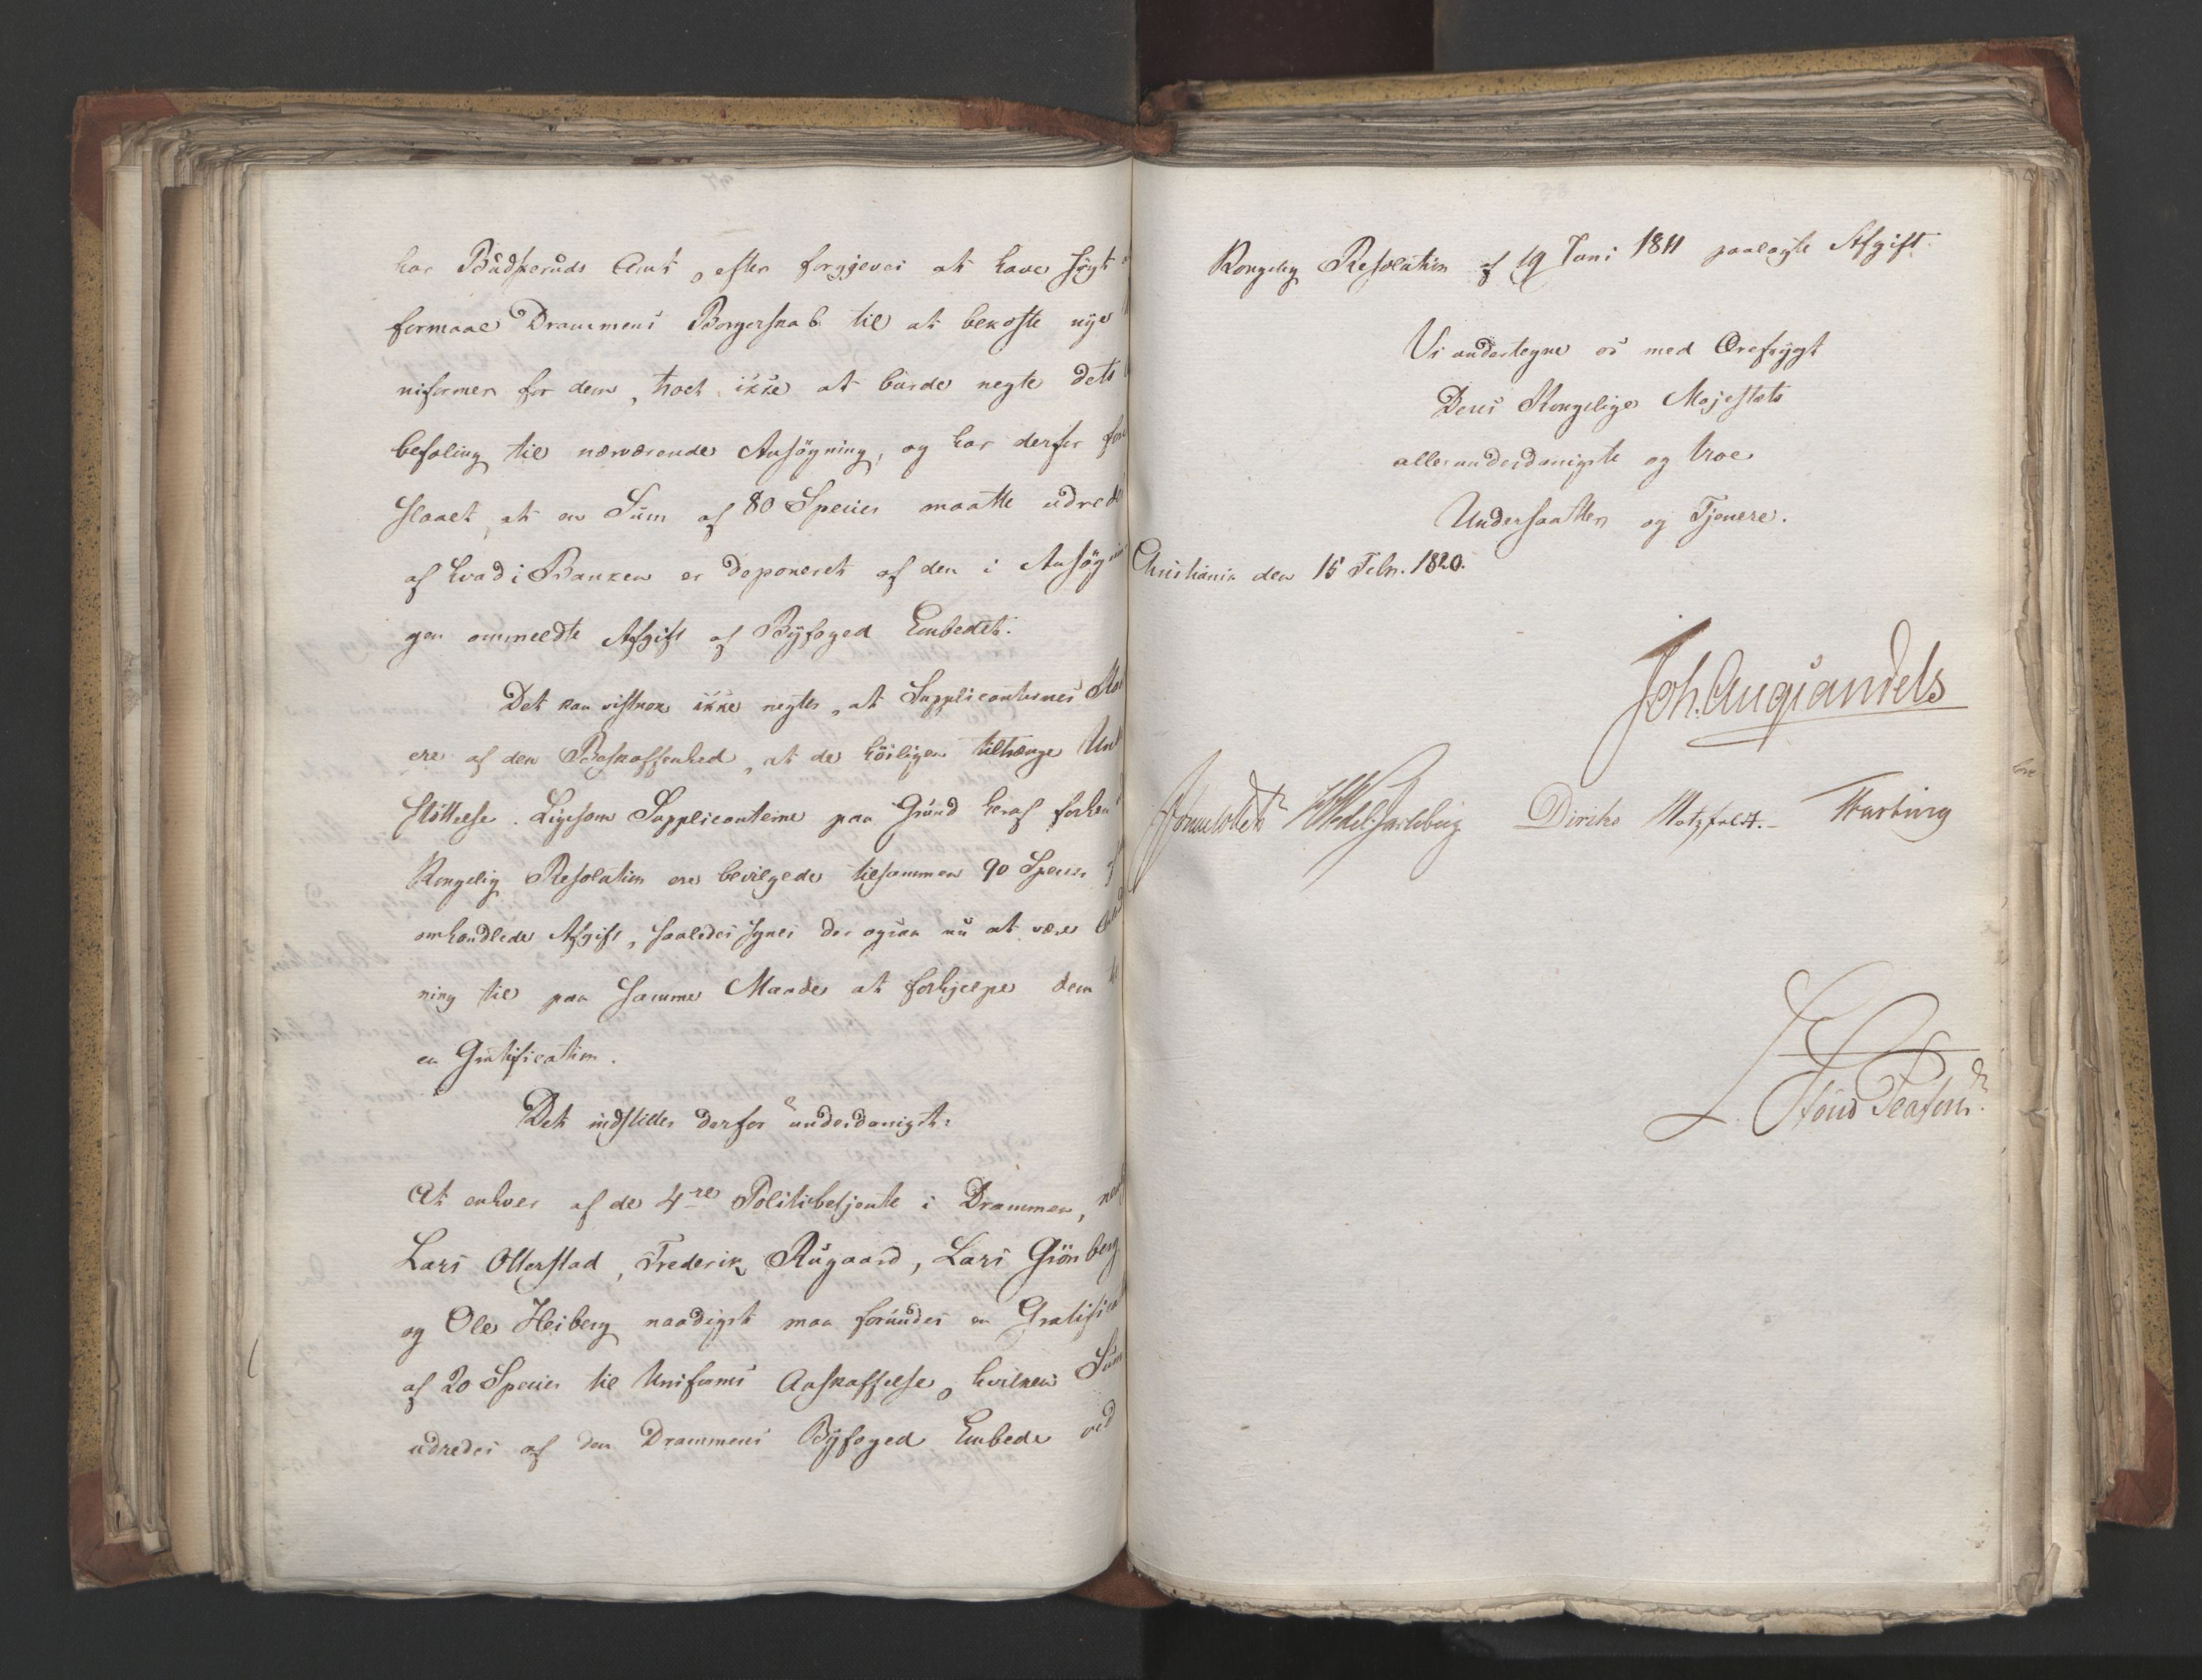 har Budskeruds Amt, efter forgjeves at have søgt
formaae Drammens Borgerskab til at bekoste nye
niformer for dem, troet ikke at burde negte dets
befaling til nærværende Ansøgning, og har derfor fore
slaaet, at en Sum af 80 Species maatte udrede
af hvad i Banken er deponeret af den i Ansøgnin
gen ommeldte Afgift af Byfoged Embedet.
Det kan vistnok ikke negtes, at Supplicanternes
ere af den Beskaffenhed, at de høiligen tiltrænge Und
støttelse. Ligesom Supplicanterne paa Grund heraf forhen
Kongelig Resolution ere bevilgede tilsammen 90 Species af
omhandlede Afgift, saaledes synes der ogsaa nu at være Anled
ning til paa samme Maade at forhjelpe dem til
en Gratification.
Det indstilles derfor underdanigst:
At enhver af de 4re Politibetjente i Drammen,
Lars Otterstad, Frederik Rugaard, Lars Grönberg
og Ole Heiberg naadigst maa forundes en Gratifica
af 20 Species til Uniforms Anskaffelse, hvilken Sum
udredes af den Drammens Byfoged Embede ved
Kongelig Resolution af 19 Juni 1811 paalagte Afgift.
Vi undertegne os med Ærefrygt
Deres Kongelige Majestæts
allerunderdanigste og troe
Undersaatter og Tjenere.
Christiania den 15 Febr. 1820.
Joh. Aug Sandels
Sommerfeldt HWedelJarlsberg Diriks Motzfeldt. Fasting